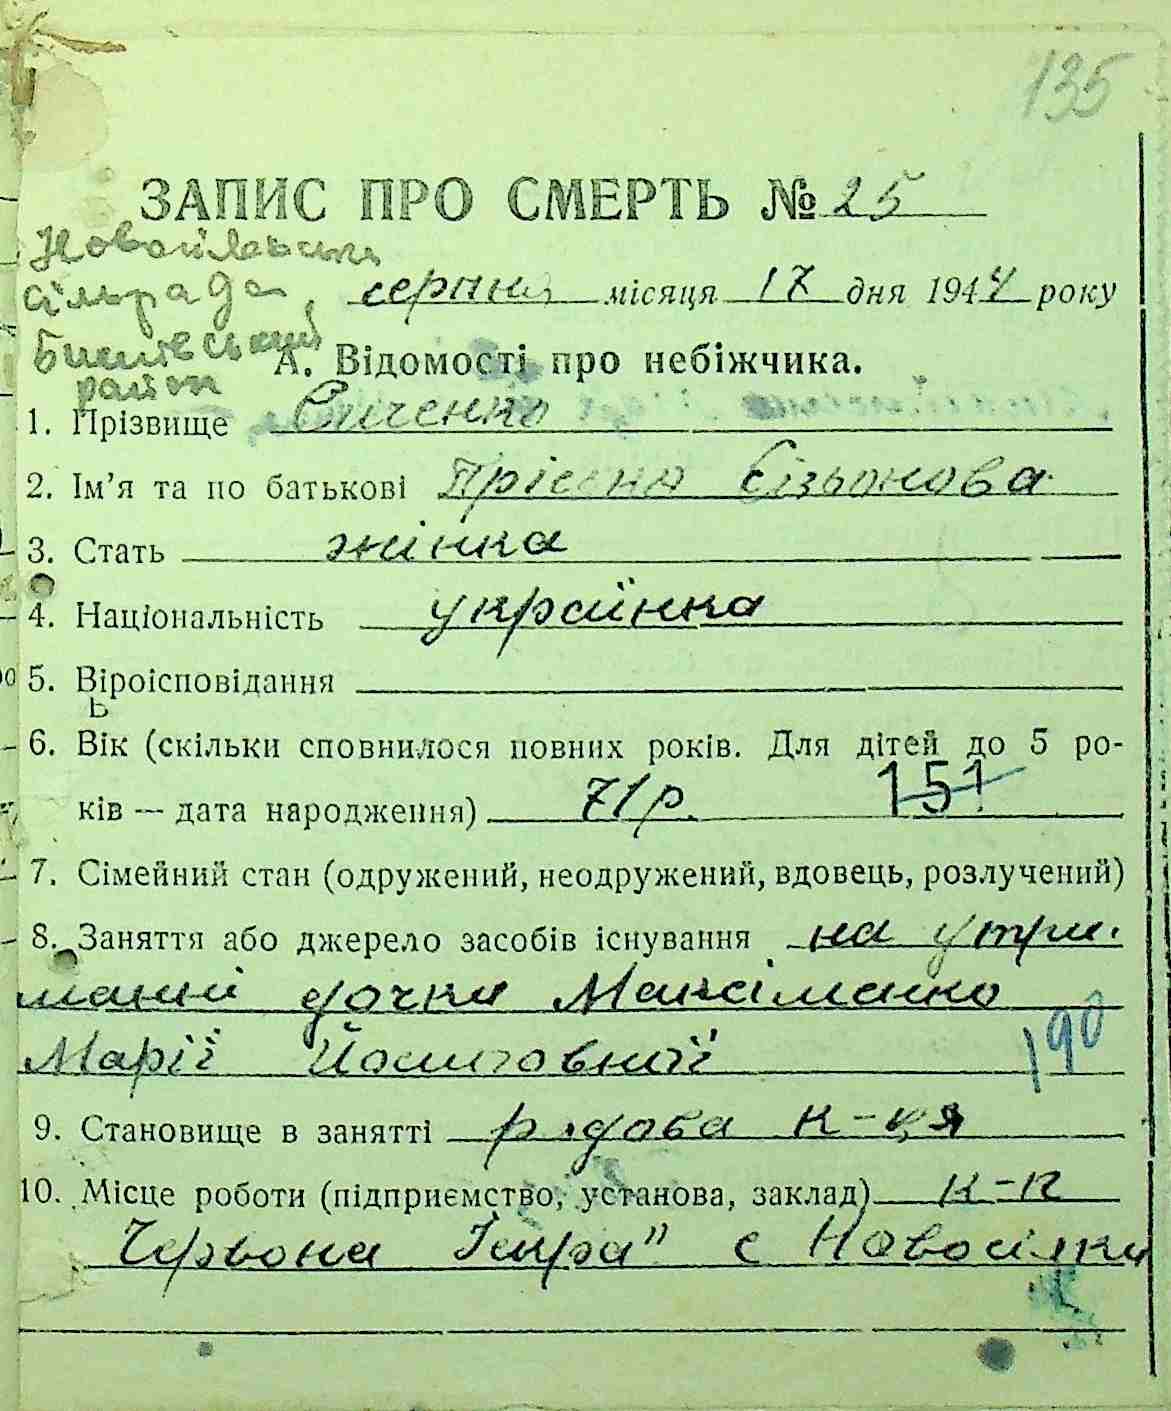 135
ЗАПИС ПРО СМЕРТЬ № 25
сільрада, серпня місяця 17 дня 1944 року
район
А. Відомості про небіжчика.
1. Прізвище
2. Ім’я та по батькові
3. Стать жінка
4. Національність українка
5. Віроісповідання
6. Вік (скільки сповнилося повних років. Для дітей до 5 ро-
ків — дата народження) 71 р. 151
7. Сімейний стан (одружений, неодружений, вдовець, розлучений)
8. Заняття або джерело засобів існування на утри-
манні дочки Максіманко
Марії 190
9. Становище в занятті рядова к-ця
10. Місце роботи (підприємство, установа, заклад) к-п
Червона Іскра” с Новосілки